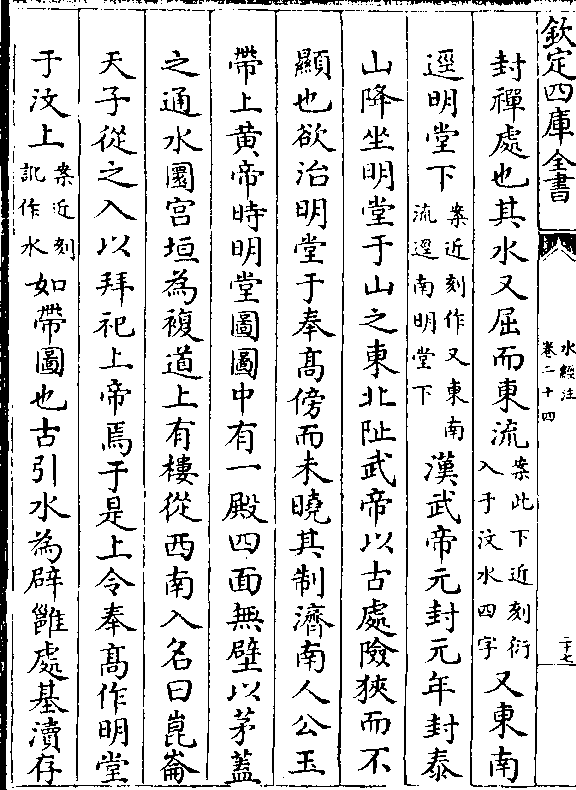 欽定四庫全書
水經注
卷二十四
二十七
封禪處也其水又屈而東流案此下近刻衍入于汶水四字又東南
逕明堂下案近刻作又東南流逕南明堂下漢武帝元封元年封泰
山降坐明堂于山之東北阯武帝以古處險狹而不
顯也欲治明堂于奉髙傍而未曉其制濟南人公玉
帶上黄帝時明堂圖圖中有一殿四面無壁以茅蓋
之通水圜宫垣為複道上有樓從西南入名曰崑崙
天子從之入以拜祀上帝焉于是上令奉髙作明堂
于汶上案近刻訛作水如帶圖也古引水為辟雝處基瀆存